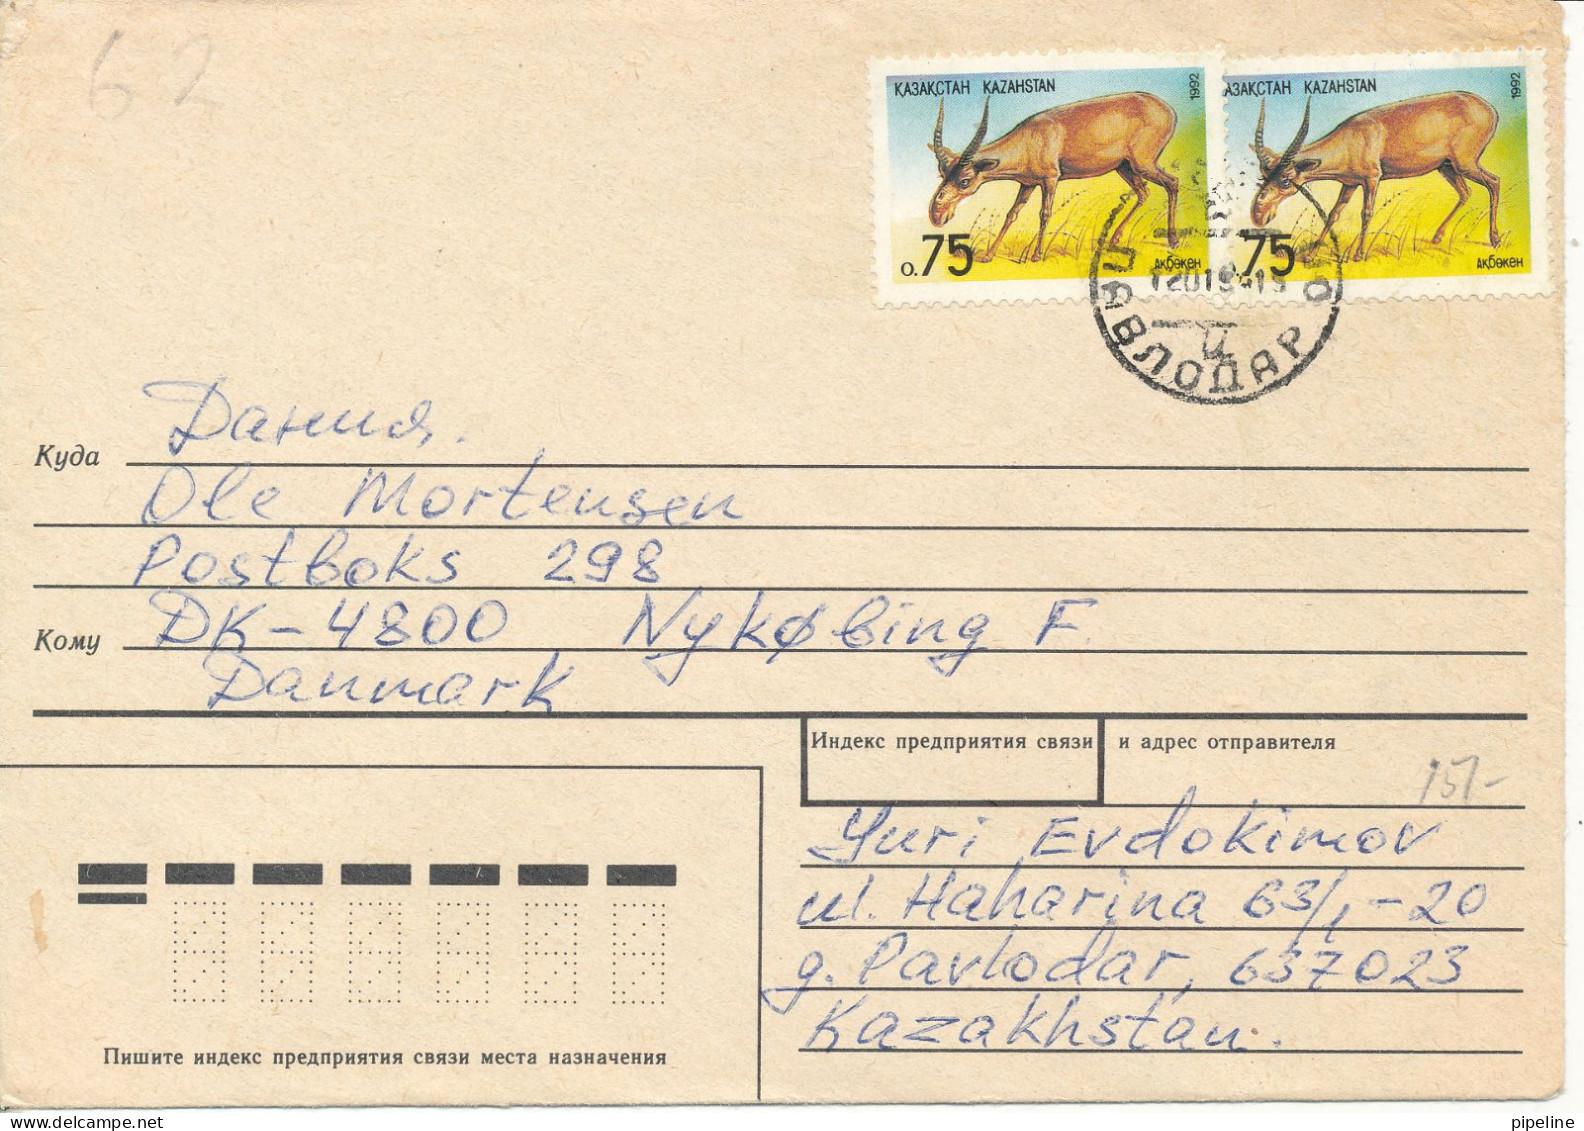 62
ҚАЗАҚСТАН KAZAHSTAN 1992
АЗАҚСТАН KAZAHSTAN 1992
0.75 АҚБӨКЕН
75 АҚБӨКЕН
ПАВЛОДАР
Ц
Дания.
Куда
Ole Mortensen
Postboks 298
Кому DK-4800 Nykøbing F.
Danmark
Индекс предприятия связи и адрес отправителя
151-
Yuri Evdokimov
ul. Haharina 63/1-20
g. Pavlodar, 637023
Kazakhstan.
Пишите индекс предприятия связи места назначения
pipeline